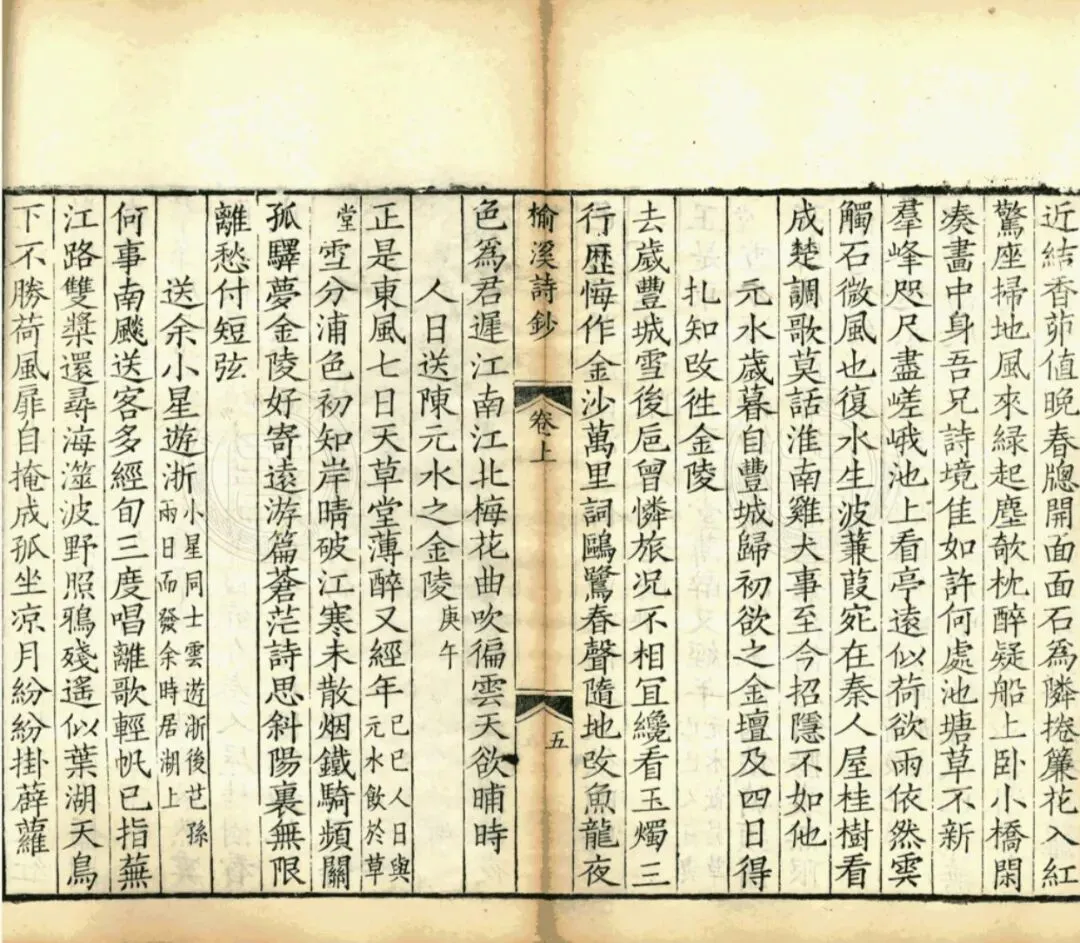 近結香茆值晚春牕開面面石為隣捲簾花入紅
驚座掃地風來緑起塵欹枕醉疑船上卧小橋閑
凑畫中身吾兄詩境佳如許何處池塘草不新
羣峰咫尺盡嵯峨池上看亭遠似荷欲雨依然雲
觸石微風也復水生波蒹葭宛在秦人屋桂樹看
成楚調歌莫話淮南雞犬事至今招隱不如他
元水歲暮自豐城歸初欲之金壇及四日得
扎知改徃金陵
去歲豐城雪後巵曾憐旅况不相冝纔看玉燭三
行歷悔作金沙萬里詞鷗鷺春聲隨地改魚龍夜
榆溪詩鈔
卷上
五
色爲君遲江南江北梅花曲吹徧雲天欲晡時
人日送陳元水之金陵庚午
正是東風七日天草堂薄醉又經年己巳人日與
元水飲於草
堂雪分浦色初知岸晴破江寒未散烟鐵騎頻關
孤驛夢金陵好寄遠游篇蒼茫詩思斜陽裏無限
離愁付短弦
送余小星遊浙小星同士雲遊浙後芑孫
兩日而發余時居湖上
何事南颷送客多經旬三度唱離歌輕帆已指蕪
江路雙槳還尋海澨波野照鴉殘遥似葉湖天鳥
下不勝荷風扉自掩成孤坐凉月紛紛掛薜蘿